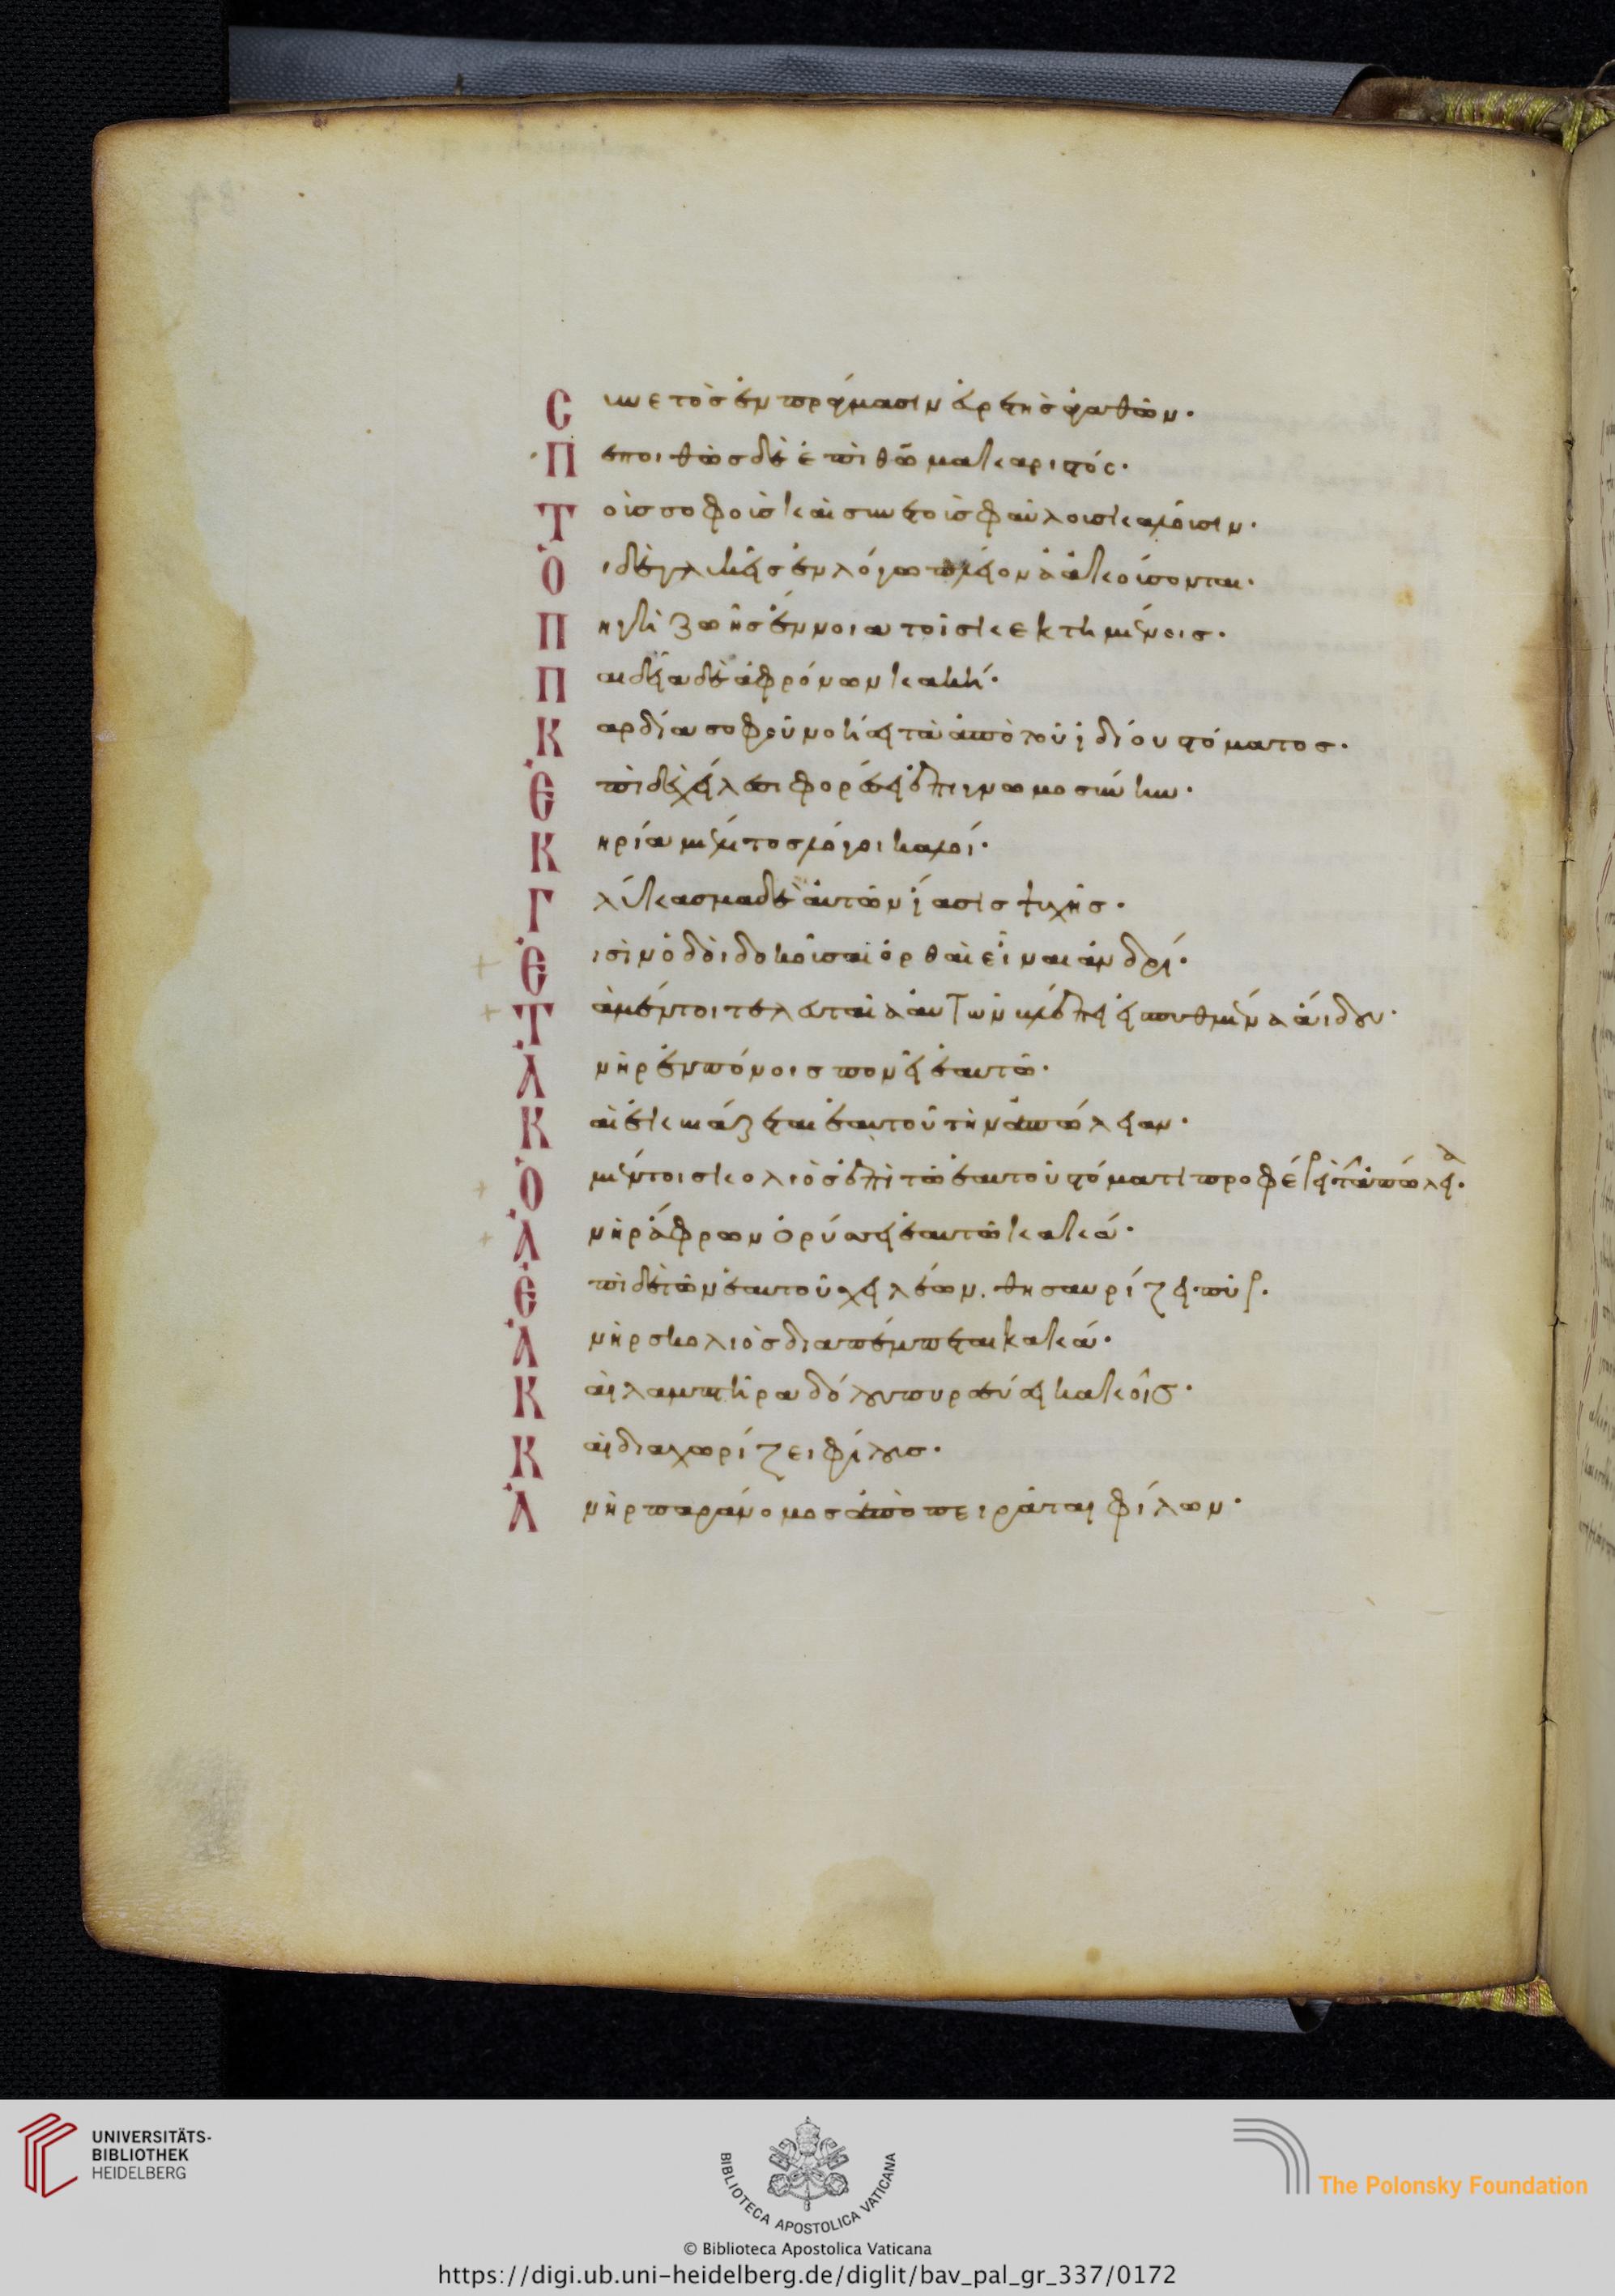 Συνετὸς ἐν πράγμασιν εὑρετὴς ἀγαθῶν·
Πεποιθὼς δὲ ἐπὶ θῶ μακαριστός·
Τοὺς σοφοὺς καὶ συνετοὺς φαύλους καλοῦσιν·
Οἱ δὲ γλυκεῖς ἐν λόγω πλείονα ἀκούσονται·
Πηγὴ ζωῆς ἔννοια τοῖς κεκτημένοις·
Παιδεία δὲ ἀφρόνων κακή·
Καρδία σοφοῦ νοήσει τὰ ἀπὸ τοῦ ἰδίου στόματος·
Ἐπὶ δὲ χείλεσι φορέσει ἐπιγνωμοσύνην·
Κηρία μέλιτος λόγοι καλοί·
Γλύκασμα δὲ αὐτῶν ἴασις ψυχῆς·
Εἰσὶν ὁδοὶ δοκοῦσαι ὀρθαὶ εἶναι ἀνδρί·
Τὰ μέντοι τελευταῖα αὐτῶν βλέπει εἰς πυθμένα ἅιδου·
Ἀνὴρ ἐν πόνοις πονεῖ ἑαυτῶ·
Καὶ ἐκβιάζεται ἑαυτοῦ τὴν ἀπώλειαν·
Ὁ μέντοι σκολιὸς ἐπὶ τῶ ἑαυτοῦ στόματι προφέρει τὴν ἀπώλεια·
Ἀνὴρ ἄφρων ὀρύσσει ἑαυτῶ κακά·
Ἐπὶ δὲ τῶν ἑαυτοῦ χειλέων. θησαυρίζει πῦρ·
Ἀνὴρ σκολιὸς διαπέμπεται κακά·
Καὶ λαμπτῆρα δόλου πυρσεύει κακοῖς·
Καὶ διαχωρίζει φίλους·
Ἀνὴρ παράνομος ἀποπειρᾶται φίλων·
UNIVERSITÄTS-
BIBLIOTHEK
HEIDELBERG
BIBLIOTECA APOSTOLICA VATICANA
The Polonsky Foundation
© Biblioteca Apostolica Vaticana
https://digi.ub.uni-heidelberg.de/diglit/bav_pal_gr_337/0172